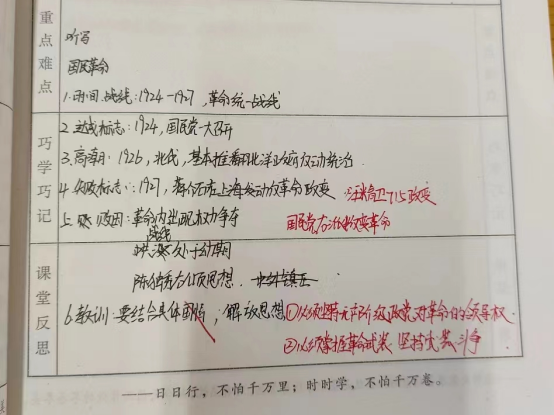 重点难点
听写
国民革命
1.时间、战线:1924-1927,革命统一战线
巧学巧记
2.达成标志:1924,国民党一大召开
3.高潮:1926,北伐,基本推翻北洋政府反动统治
4.失败标志:1927,蒋介石上海发动反革命政变 汪精卫七一五政变
5.失败原因:革命内出现权力争夺 国民党右派叛变革命
战线
中共处于幼期
陈独秀右倾思想.
课堂反思
6.教训:要结合具体国情,解放思想 ①必须坚持无产阶级政党对革命的领导权
②必须掌握革命武装 坚持武装斗争
——日日行,不怕千万里;时时学,不怕千万卷。